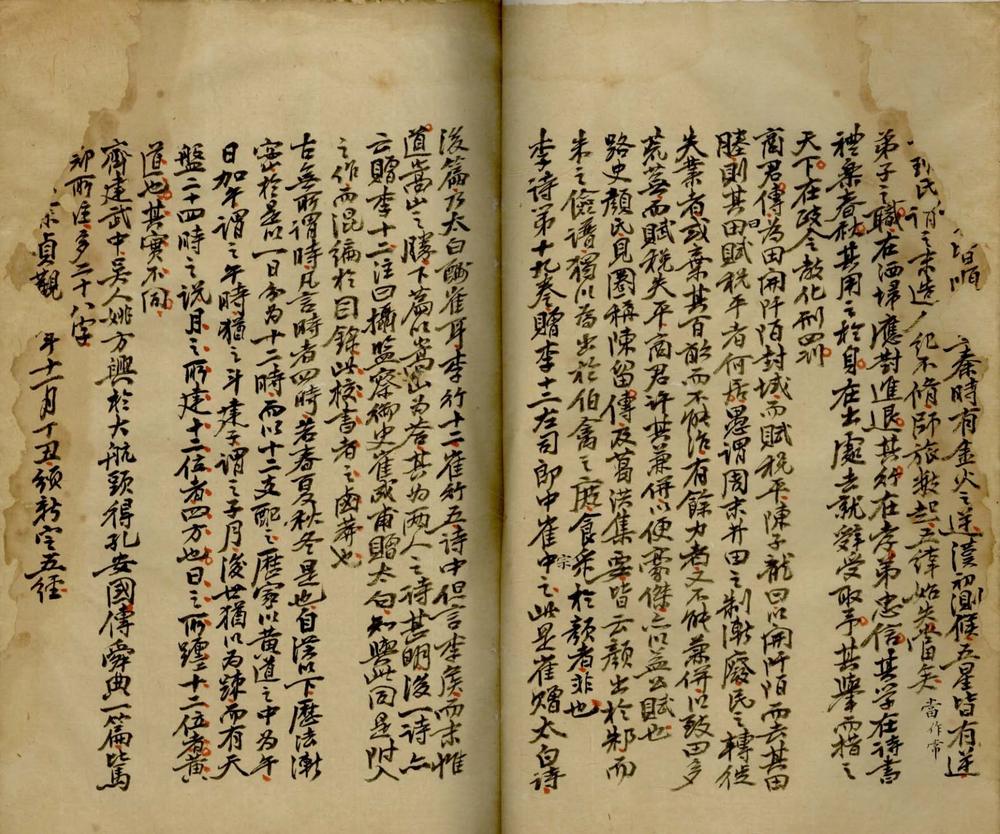 秦時有金火之逆漢初測候五星皆有逆
氏謂之末造 紀不脩師旅數起五緯始失當矣當作常
弟子之職在洒埽應對進退其行在孝弟忠信其學在詩書
禮樂春秋其用之於身在出處去就辭受取予其舉而措之
天下在政令教化刑罰
商君傳為田開阡陌封域而賦稅平陳子龍曰以開阡陌而去其田
塍則其田賦稅平者何居愚謂周末井田之制漸廢民之轉徙
失業者或棄其百畝而不能治有餘力者又不能兼併以致田多
荒蕪而賦稅失平商君許其兼併以便豪傑亦以益公賦也
路史顏氏見圈稱陳留傳及葛洪集要皆云顏出於邾而
朱之儉譜獨以為出於伯禽之庶食采於顏者非也
李詩第十九卷贈李十二左司郎中崔宗之此是崔贈太白詩
後篇乃太白酬崔耳李行十二崔行五詩中但言李侯而末惟
道嵩山之勝下篇以嵩山為答其為兩人之詩甚明後一詩亦
云贈李十二注曰攝監察御史崔成甫贈太白知與此同是附入
之作而混編於目錄此校書者之鹵莽也
古無所謂時凡言時者四時若春夏秋冬是也自漢以下歷法漸
密於是以一日分為十二時而以十二支配之歷家以黃道之中為午
日加午謂之午時猶之斗建子謂之子月後世猶以為疎而有天
盤二十四時之說月之所建十二位者四方也日之所躔十二位者黃
道也其實不同
齊建武中吳人姚方興於大航頭得孔安國傳舜典一篇比馬
鄭所注多二十八字
貞觀 年十一月丁丑頒新定五經